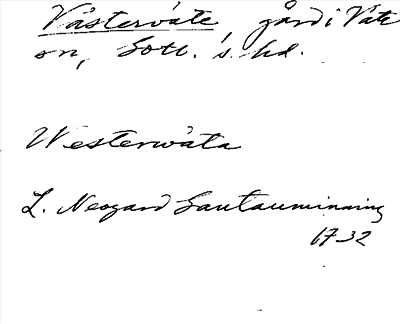 Västerväte, gård i Väte
sn, Gotl. s. hd.
Westerwäta
L. Neogard Gautauminning
1732